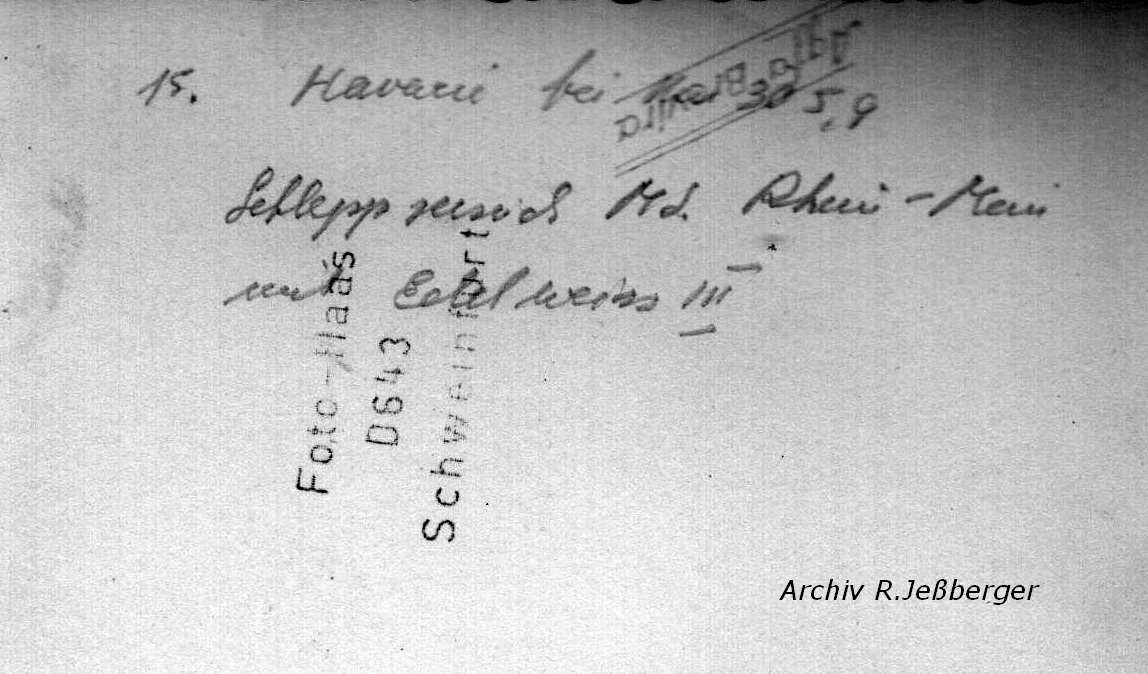 15. Havarie bei Main 305,9
Schleppversuch Md. Rhein-Main
mit Edelweiss III
Foto-Haas
D643
Schweinfurt
Archiv R.Jeßberger